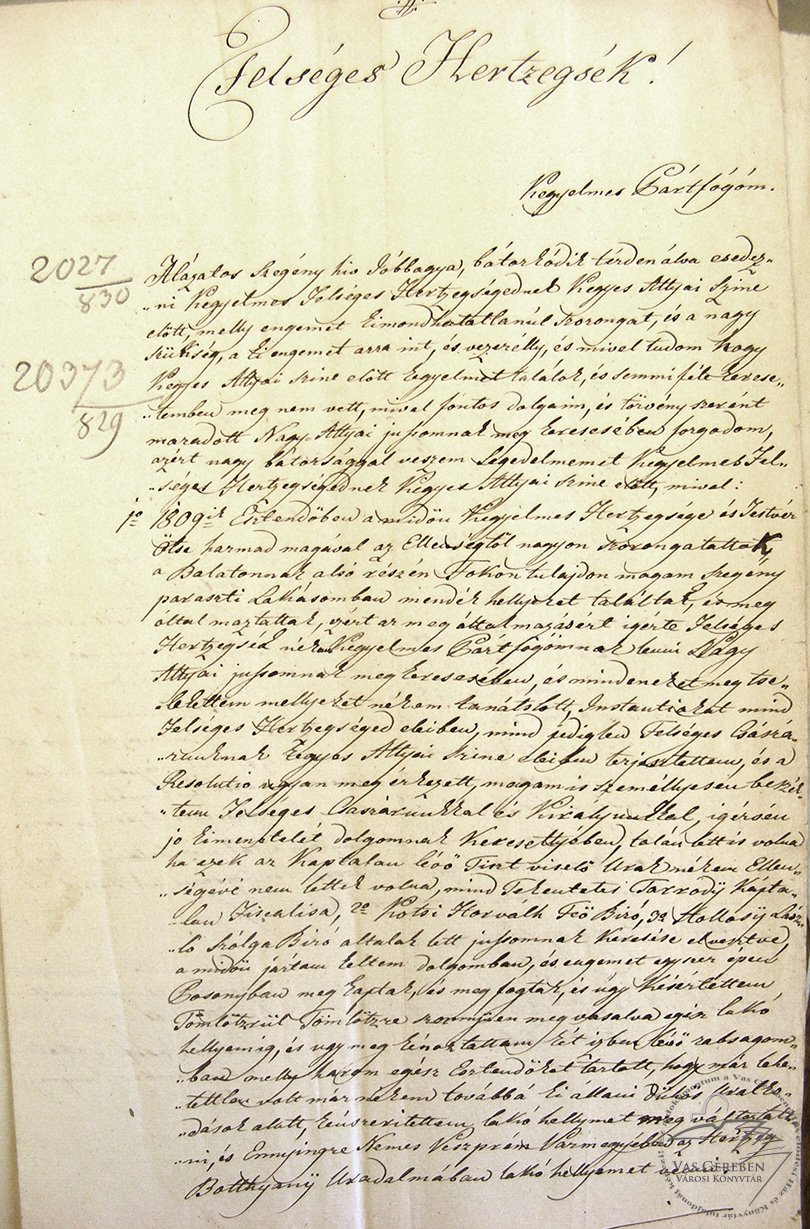 Felséges Hertzegsék!
Kegyelmes Pártfógóm.
2027/830
20373/829
Alázatos szegény hiv Jóbbagya, bátorkódik térden álva esedez-
„ni Kegyelmes Felséges Hertzegségednek Kegyes Attyai Szine
elött, melly engemet kimondhatatlanúl szorongat, és a nagy
szükség, a ki engemet arra int, és vezerelly, és mivel tudom hogy
Kegyes Attyai szine elött kegyelmet találok, és semmi félt kerese-
„temben meg nem vett, mivel fontos dolgaim, és törvény szerént
maradott Nagy Attyai jussomnak meg keresésében forgodom,
azért nagy bátorsággal veszem Segedelmemet Kegyelmes Fel-
„séges Hertzegségednek Kegyes Attyai szine elött, mivel:
1º 1809ik Esztendöben a midön Kegyelmes Hertzegsége és Testvér
Ötse harmad magával az Ellenségtöl nagyon szorongattattak
a Balatonnak alsó részén Fokon tulajdon magam szegény
paraszti Lakásomban mendék hellyezet találtak, és meg
óltal maztattak, s ért az meg óltalmazásért igerte Felséges
Hertzegsék nékem Kegyelmes Pártfógómnak lenni Nagy
Attyai jussomnak meg keresesében, és mindeneket meg tse-
„lekettem mellyeket nékem tanátslott, Instantiokat mind
Felséges Hertzegséged eleiben, mind pediglen Felséges Császá-
„runknak Kegyes Attyai szine eleiben terjesztettem, és a
Resolutio ugyan meg érkezett, magam is személlyesen beszél-
„tem Felséges Császárunkkal és Királyunkkal, igérsén
jo kimenetelét dolgomnak keresettyében, talán lett is volna
ha ezek az Kaptalan lévö Tiszt viselö Urak nékem Ellen-
„ségévé nem lettek volna, mind Tekentetes Csarrody Kápta-
„lan Fiscalisa, 2º Kotsi Horváth Fö Biró, 3º Hollosÿ Lász-
„ló szólga Biró általak lett jussomnak keresése elvesztve,
a midön jártam keltem dolgomban, és engemet egyszer épen
Posonyban meg kaptak, és meg fogtak, és úgy késértettem
Tömlötzrül Tömlötzre szornyüen meg vasalva egész lakó
hellyemig, és ugy meg kénoztattam két izben lévö rabsagom-
„ban melly három egész Esztendöket tartott, hogy már lehe-
„tetlen volt már nékem továbbá ki állani Uralko-
„dások alatt, kénszeritettem lakó hellymet meg változtatt-
„ni, és Ennyingre Nemes Veszprém Vármegyében az Hertzeg
Botthyanÿ Uradalmában lakó hellyemet
VAS GEREBEN
VÁROSI KÖNYVTÁR